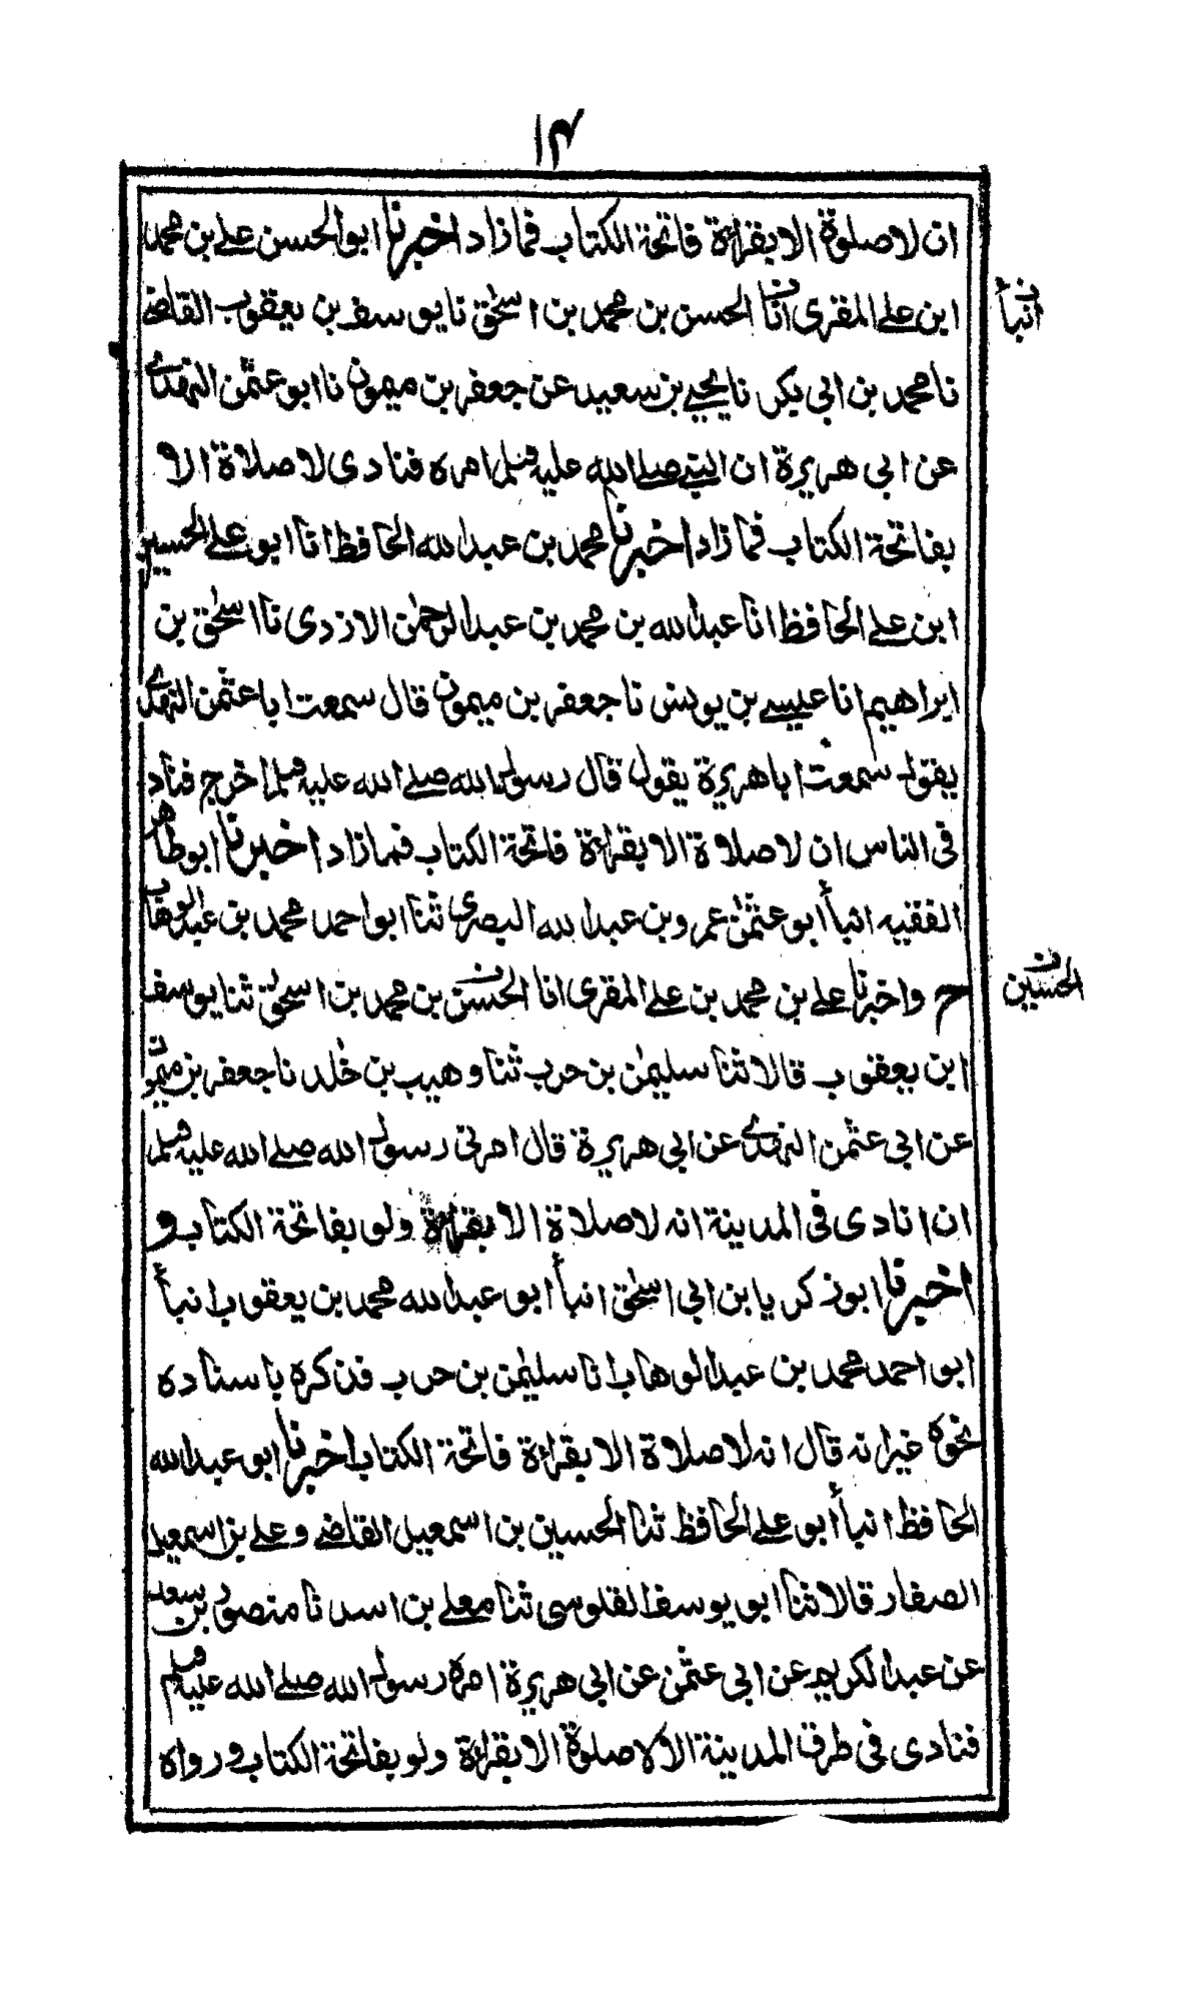 ١٤
ان لا صلوة الا بقراءة فاتحة الكتاب فما زاد اخبرنا ابوالحسن علي بن محمد
ابن علي المقرى انا الحسن بن محمد بن اسحٰق نا يوسف بن يعقوب القاضي
انبأ
نا محمد بن ابي بكر نا يحيي بن سعيد عن جعفر بن ميمون نا ابو عثمٰن النهدي
عن ابي هريرة ان النبي صلى الله عليه وسلم امره فنادى لا صلاة الا
بفاتحة الكتاب فما زاد اخبرنا محمد بن عبدالله الحافظ انا ابو علي الحسين
ابن علي الحافظ انا عبدالله بن محمد بن عبدالرحمٰن الازدى نا اسحٰق بن
ابراهيم انا عيسي بن يونس نا جعفر بن ميمون قال سمعت ابا عثمٰن النهدي
يقول سمعت ابا هريرة يقول قال رسول الله صلى الله عليه وسلم اخرج فناد
فى الناس ان لا صلاة الا بقراءة فاتحة الكتاب فما زاد اخبرنا ابو طاهر
الفقيه انبأ ابو عثمٰن عمرو بن عبدالله البصرى ثنا ابو احمد محمد بن عبدالوهاب
ح واخبرنا علي بن محمد بن علي المقرى انا الحسن بن محمد بن اسحٰق ثنا يوسف
الحسين
ابن يعقوب قالا ثنا سليمٰن بن حرب ثنا وهيب بن خٰلد نا جعفر بن ميمون
عن ابي عثمٰن النهدي عن ابي هريرة قال امرنى رسول الله صلى الله عليه وسلم
ان انادى فى المدينة انه لا صلاة الا بقراءة ولو بفاتحة الكتاب و
اخبرنا ابو زكريا بن ابي اسحٰق انبأ ابو عبدالله محمد بن يعقوب انبأ
ابو احمد محمد بن عبدالوهاب انا سليمٰن بن حرب فذكره باسناده
نحوه غير انه قال انه لا صلاة الا بقراءة فاتحة الكتاب اخبرنا ابو عبدالله
الحافظ انبأ ابو علي الحافظ ثنا الحسين بن اسمعيل القاضي و علي بن اسمعيل
الصفار قالا ثنا ابو يوسف القلوسى ثنا معلي بن اسد نا منصور بن سعد
عن عبدالكريم عن ابي عثمٰن عن ابي هريرة امره رسول الله صلى الله عليه وسلم
فنادى فى طرق المدينة الا لا صلوة الا بقراءة ولو بفاتحة الكتاب و رواه